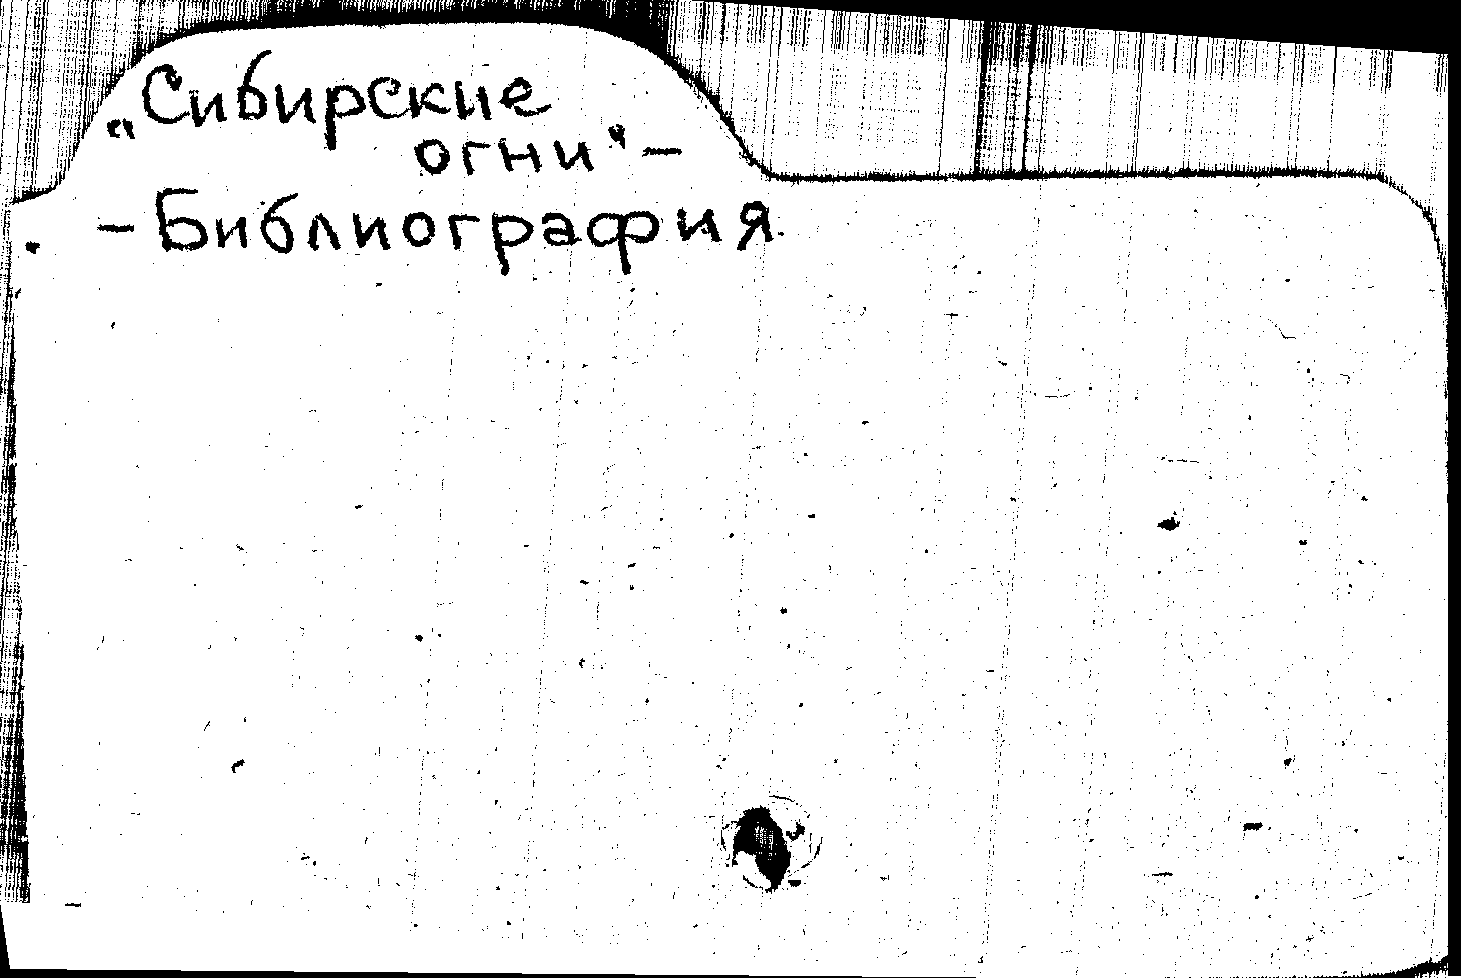 „Сибирские
огни" –
– Библиография